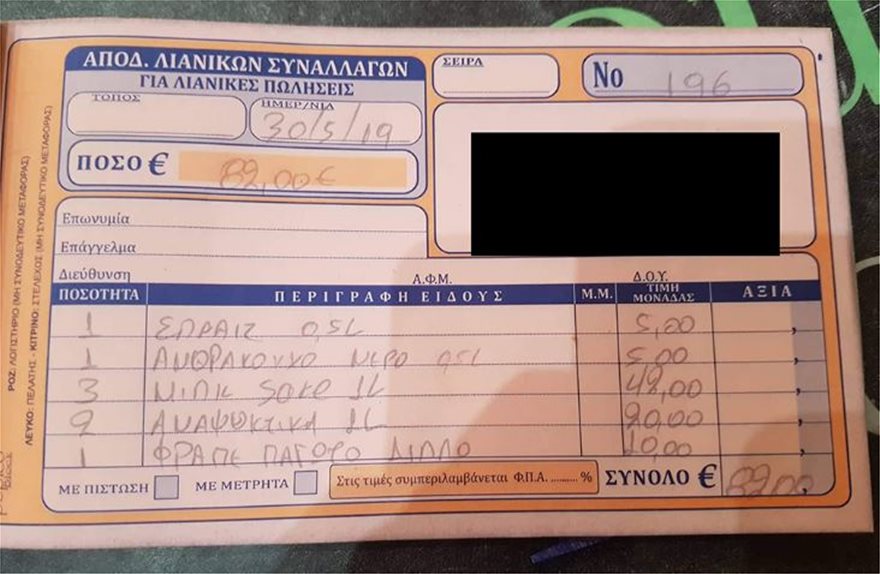 ΑΠΟΔ. ΛΙΑΝΙΚΩΝ ΣΥΝΑΛΛΑΓΩΝ
ΓΙΑ ΛΙΑΝΙΚΕΣ ΠΩΛΗΣΕΙΣ
ΣΕΙΡΑ
Νο 196
ΤΟΠΟΣ
ΗΜΕΡ/ΝΙΑ
30/5/19
ΠΟΣΟ € 82,00€
Επωνυμία
Επάγγελμα
Διεύθυνση Α.Φ.Μ. Δ.Ο.Υ.
ΠΟΣΟΤΗΤΑ ΠΕΡΙΓΡΑΦΗ ΕΙΔΟΥΣ Μ.Μ. ΤΙΜΗ ΜΟΝΑΔΑΣ ΑΞΙΑ
1 ΣΠΡΑΙΤ 0,5L 5,00 ,
1 ΑΝΘΡΑΚΟΥΧΟ ΝΕΡΟ 0,5L 5,00 ,
3 ΜΙΛΚ 1L 42,00 ,
2 ΑΝΑΨΚΤΙΚΑ 1L 20,00 ,
1 ΦΡΑΠΕ ΠΑΓΟΤΟ ΔΙΠΛΟ 10,00 ,
ΜΕ ΠΙΣΤΩΣΗ ΜΕ ΜΕΤΡΗΤΑ Στις τιμές συμπεριλαμβάνεται Φ.Π.Α. .......... % ΣΥΝΟΛΟ € 82,00
ΡΟΖ: ΛΟΓΙΣΤΗΡΙΟ (ΜΗ ΣΥΝΟΔΕΥΤΙΚΟ ΜΕΤΑΦΟΡΑΣ)
ΛΕΥΚΟ: ΠΕΛΑΤΗΣ - ΚΙΤΡΙΝΟ: ΣΤΕΛΕΧΟΣ (ΜΗ ΣΥΝΟΔΕΥΤΙΚΟ ΜΕΤΑΦΟΡΑΣ)